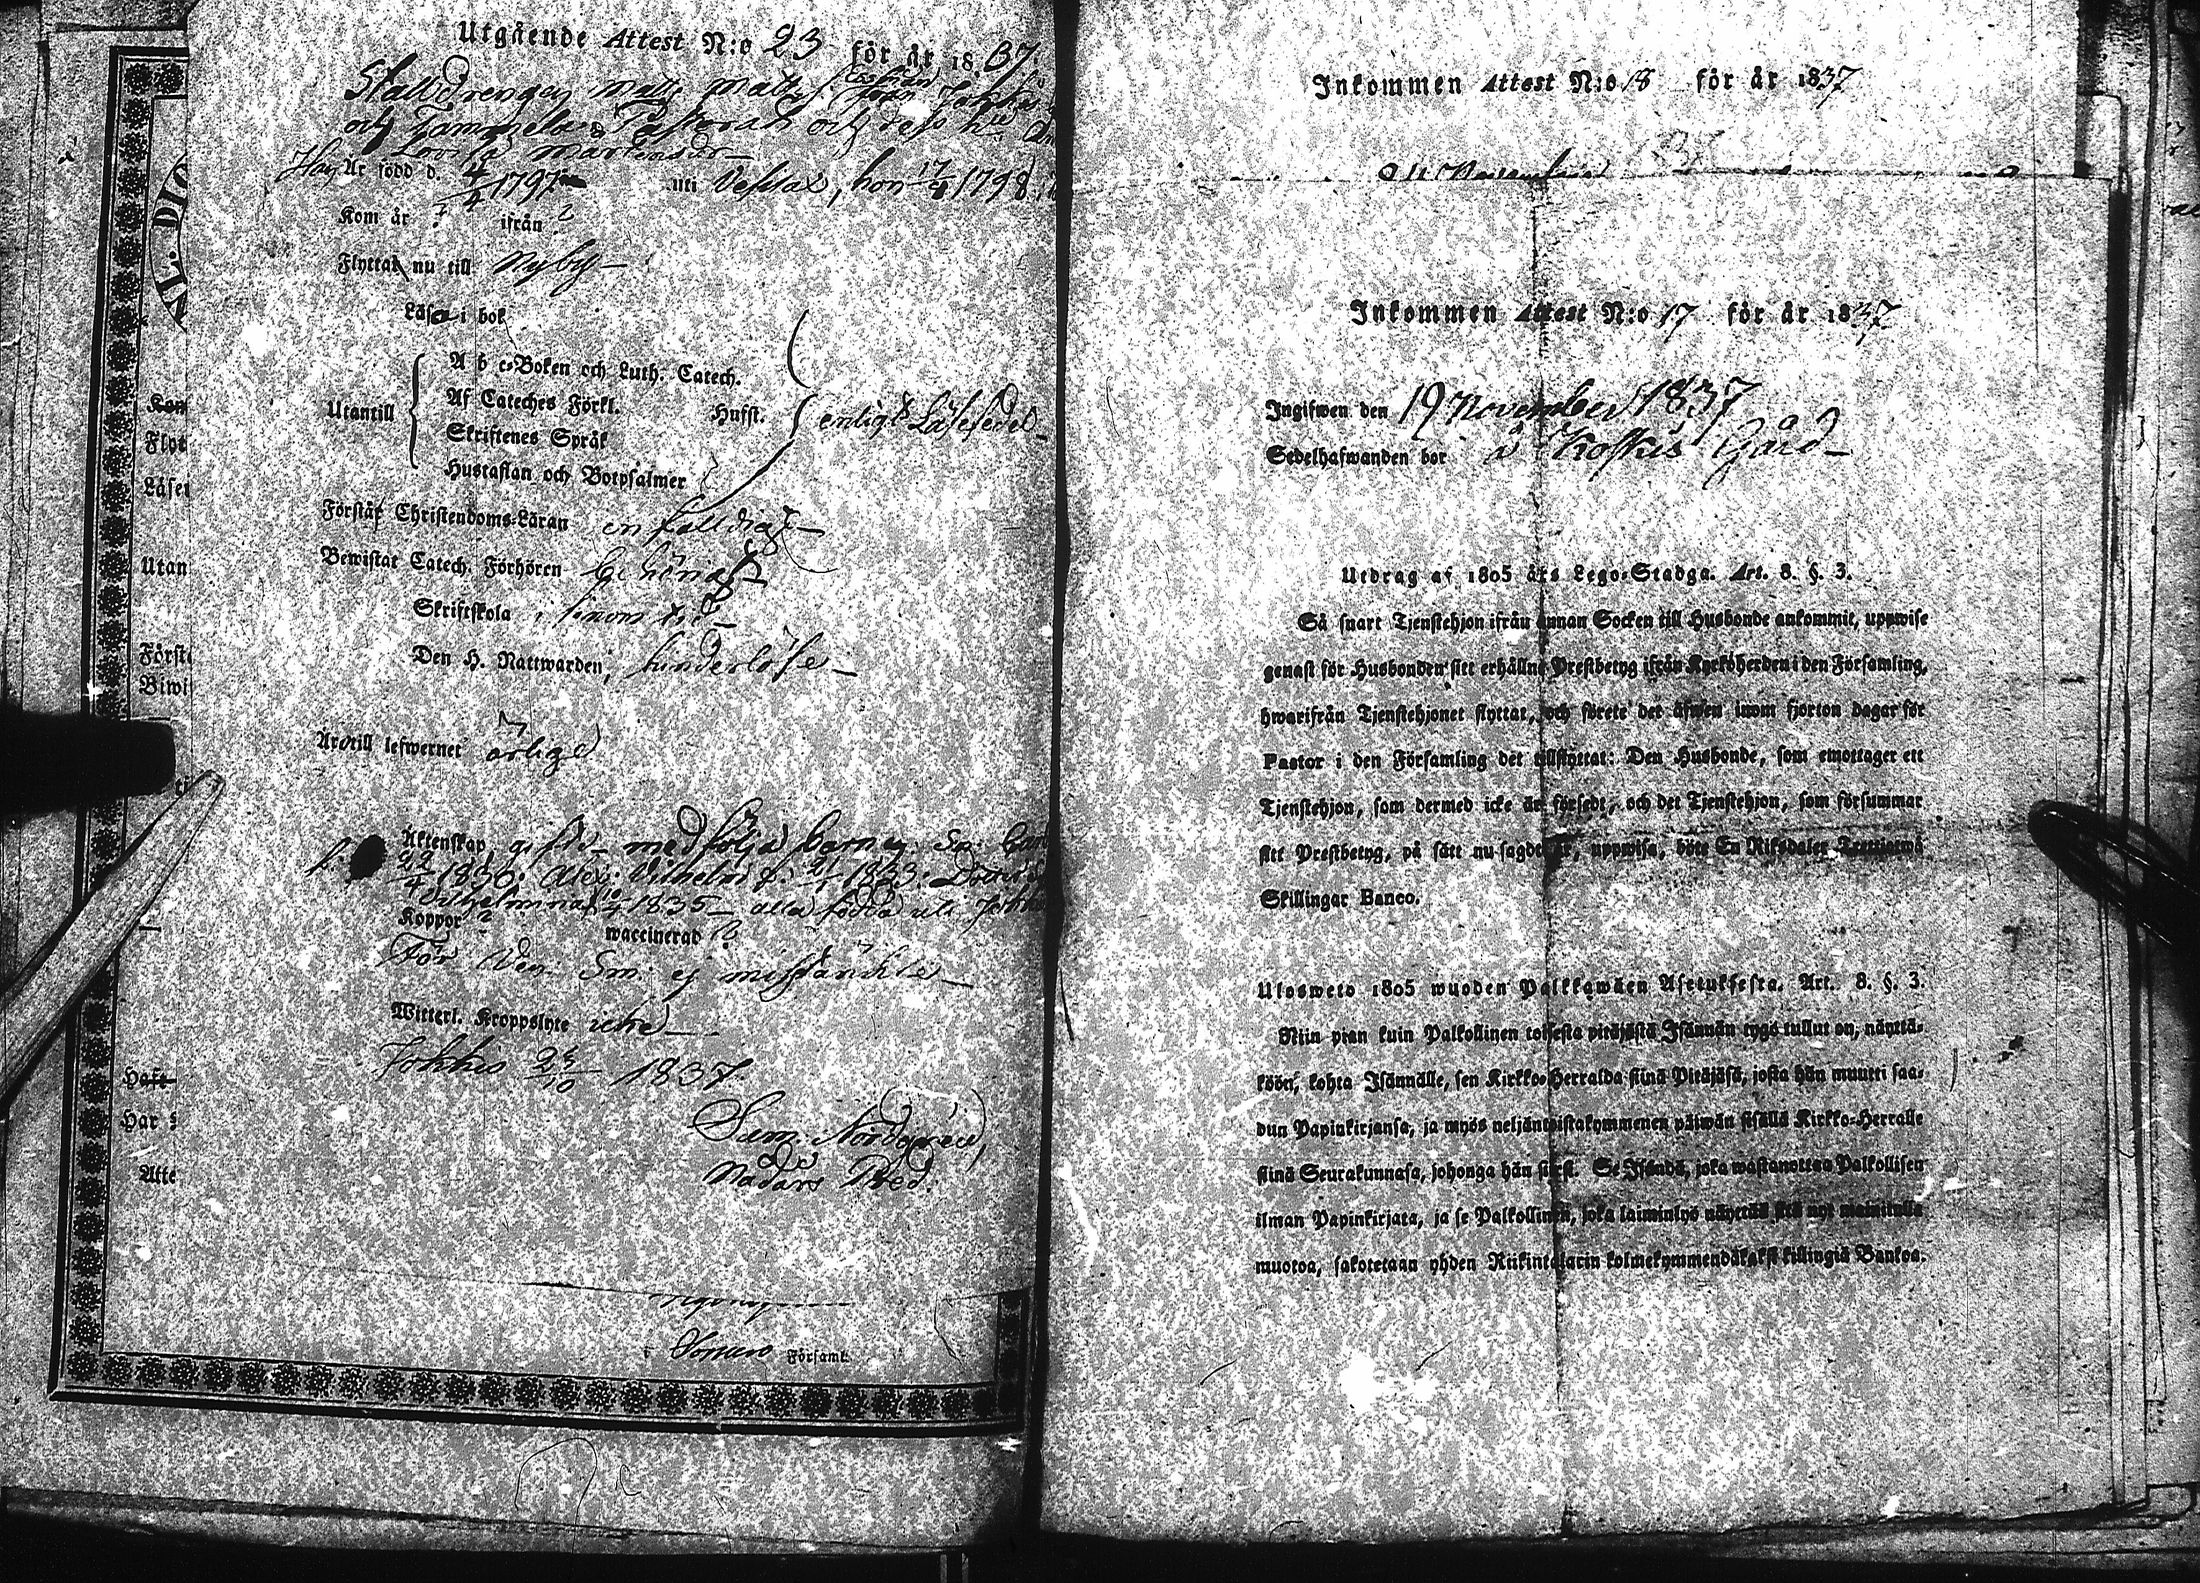 Utgående Attest N:o 23 för år 1837.
Stalldrengen Matts Matts s. från Jokkis
och Tammela Pastorah och dess hu
Lovisa Martinsdr
Han Är född d. 4/4 1797 uti Vestax, hon 17/8 1798
Kom år ? ifrån ?
Flyttat nu till Nyby
Läsa i bok
A b c-Boken och Luth. Catech.
Af Cateches Förkl. Hufst.
Utantill enligt Läsesedel
Skriftenes Språk
Hustaflan och Botpsalmer
Förstår Christendoms-Läran enfaldigt
Bewistat Catech. Förhören behörigt
Skriftskola i sinom tid
Den H. Nattwarden hinderlöse
Är till lefwernet ärlige
Äktenskap gifte medfölja barnen
f. 29/4 1830. Alex: Vilhelm f. 21/1 1833.
Vilhelmina 1835 alla födda uti Jokkis
Koppor ? waccinerad ?
För Ven. Sm. ej misstänkte
Witterl. Kroppslyte icke
Jokkis 24/10 1837.
Sam. Nordgrén,
Nådårs Pred.
i Somero Församl.
Kom
Flyt
Läser
Utan
Först
Biwis
Haft
Har
Atte
Inkommen Attest N:o 18 för år 1837
Inkommen Attest N:o 17 för år 1837
Ingifwen den 19 November 1837
Sedelhafwanden bor å Koskis Gård
Utdrag af 1805 års Lego-Stadga. Art. 8. §. 3.
Så snart Tjenstehjon ifrån annan Socken till Husbonde ankommit, uppwise
genast för Husbonden sitt erhållne Prestbetyg ifrån Kyrkoherden i den Församling,
hwarifrån Tjenstehjonet flyttat, och förete det äfwen inom fjorton dagar för
Pastor i den Församling det tillflyttat: Den Husbonde, som emottager ett
Tjenstehjon, som dermed icke är försedt, och det Tjenstehjon, som försummar
sitt Prestbetyg, på sätt nu sagdt är, uppwisa, böte En Riksdaler Trettiotwå
Skillingar Banco.
Ulosweto 1805 wuoden Palkkawäen Asetuksesta. Art. 8. §. 3.
Niin pian kuin Palkollinen toisesta pitäjästä Isännän tygö tullut on, näyttä-
köön, kohta Isännälle, sen Kirkko-Herralda siinä Pitäjäsä, josta hän muutti saa-
dun Papinkirjansa, ja myös neljäntoistakymmenen päiwän sisällä Kirkko-Herralle
siinä Seurakunnasa, johonga hän siirst. Se Isändä, joka wastanottaa Palkollisen
ilman Papinkirjata, ja se Palkollinen, joka laiminlyö näyttää sitä nyt mainitulla
muotoa, sakotetaan yhden Riikintalarin kolmekymmendäkaksi killingiä Bankoa.